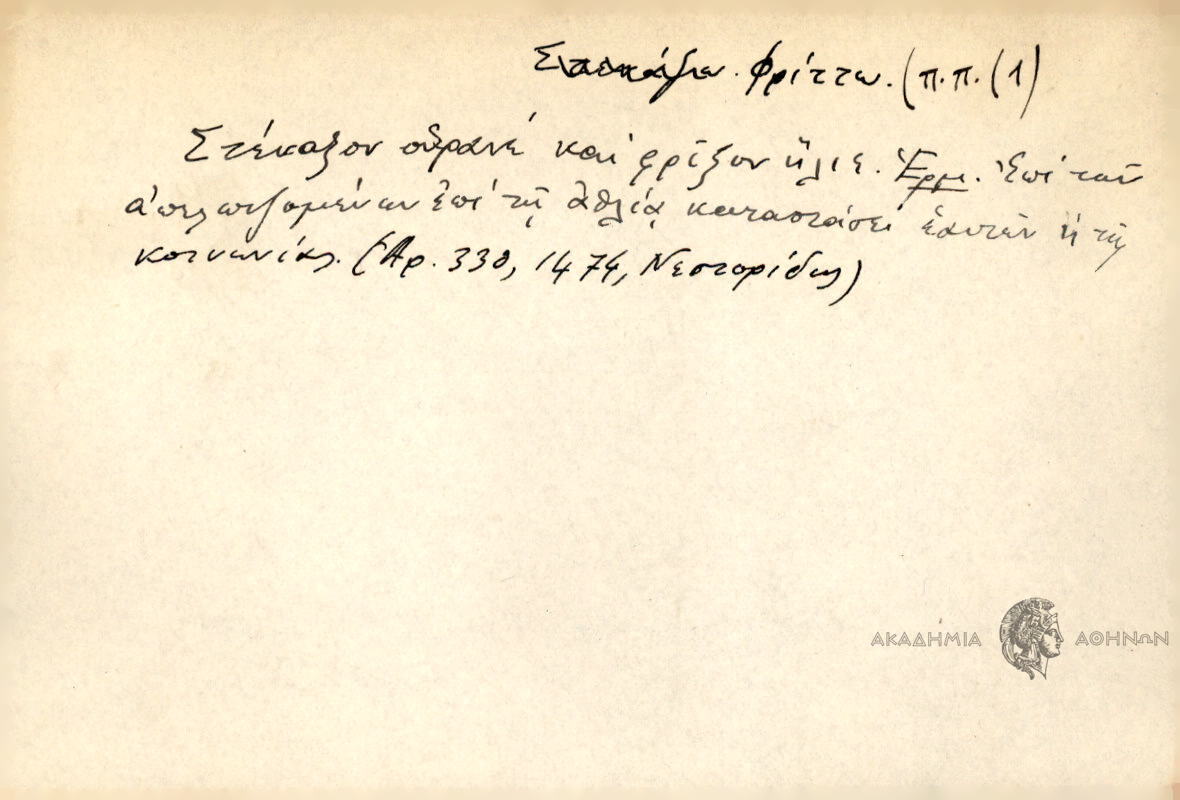 Στεκάζω. Φρίττω. (π.π. (1)
Στέκαξον οὐρανέ καί φρῖξον ἥλιε. Ἑρμ. Ἐπί τῶν
ἀπελπιζομένων ἐπί τῇ ἀθλίᾳ καταστάσει ἑαυτῶν ἤ τῆς
κοινωνίας. (Ἀρ. 330, 1474, Νεστορίδης)
ΑΚΑΔΗΜΙΑ ΑΘΗΝΩΝ